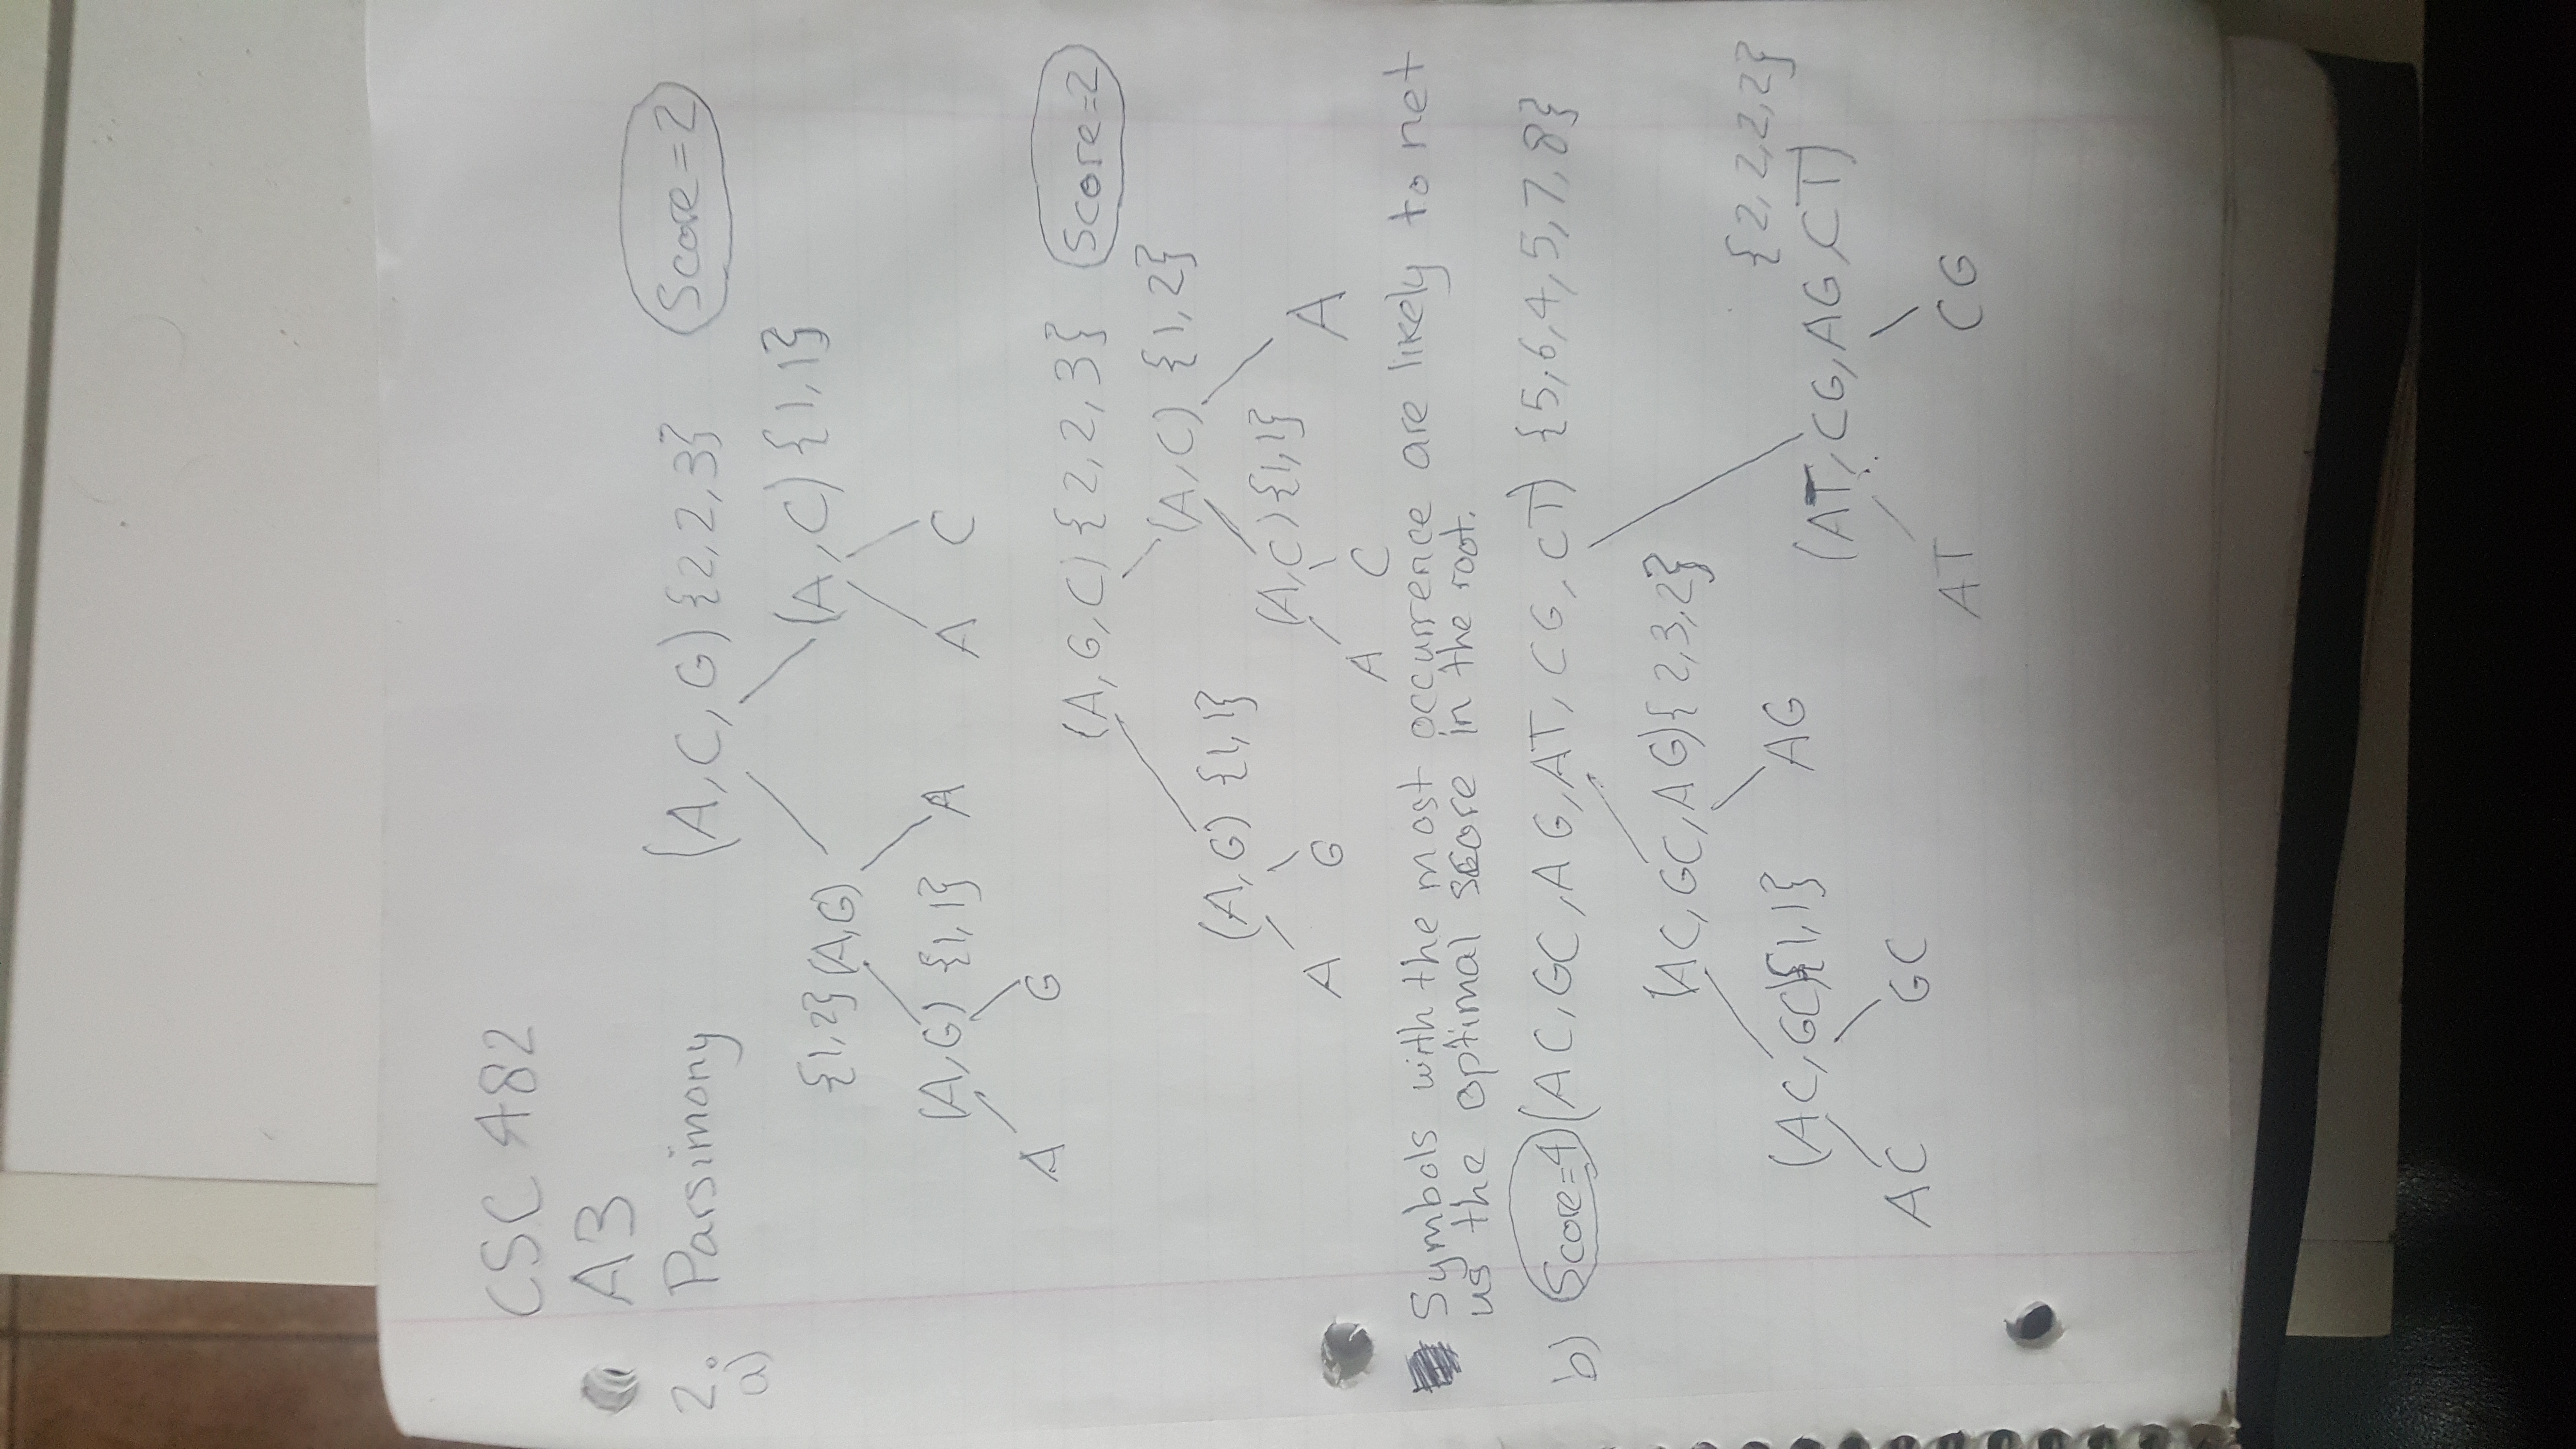 CSC 482
A3
2. Parsimony (A, C, G) {2,2,3} Score=2
a)
{1,2} (A,G) (A,C) {1,1}
(A,G) {1,1} A A C
A G
(A,G,C) {2,2,3} Score=2
(A,C) {1,2}
(A,G) {1,1}
(A,C) {1,1} A
A G
A C
Symbols with the most occurrence are likely to net
us the optimal score in the root.
b) Score=4 (AC, GC, AG, AT, CG, CT) {5,6,4,5,7,8}
(AC, GC, AG) {2,3,2}
{2,2,2,2}
(AC,GC){1,1} AG
(AT, CG, AG, CT)
AC GC
AT CG